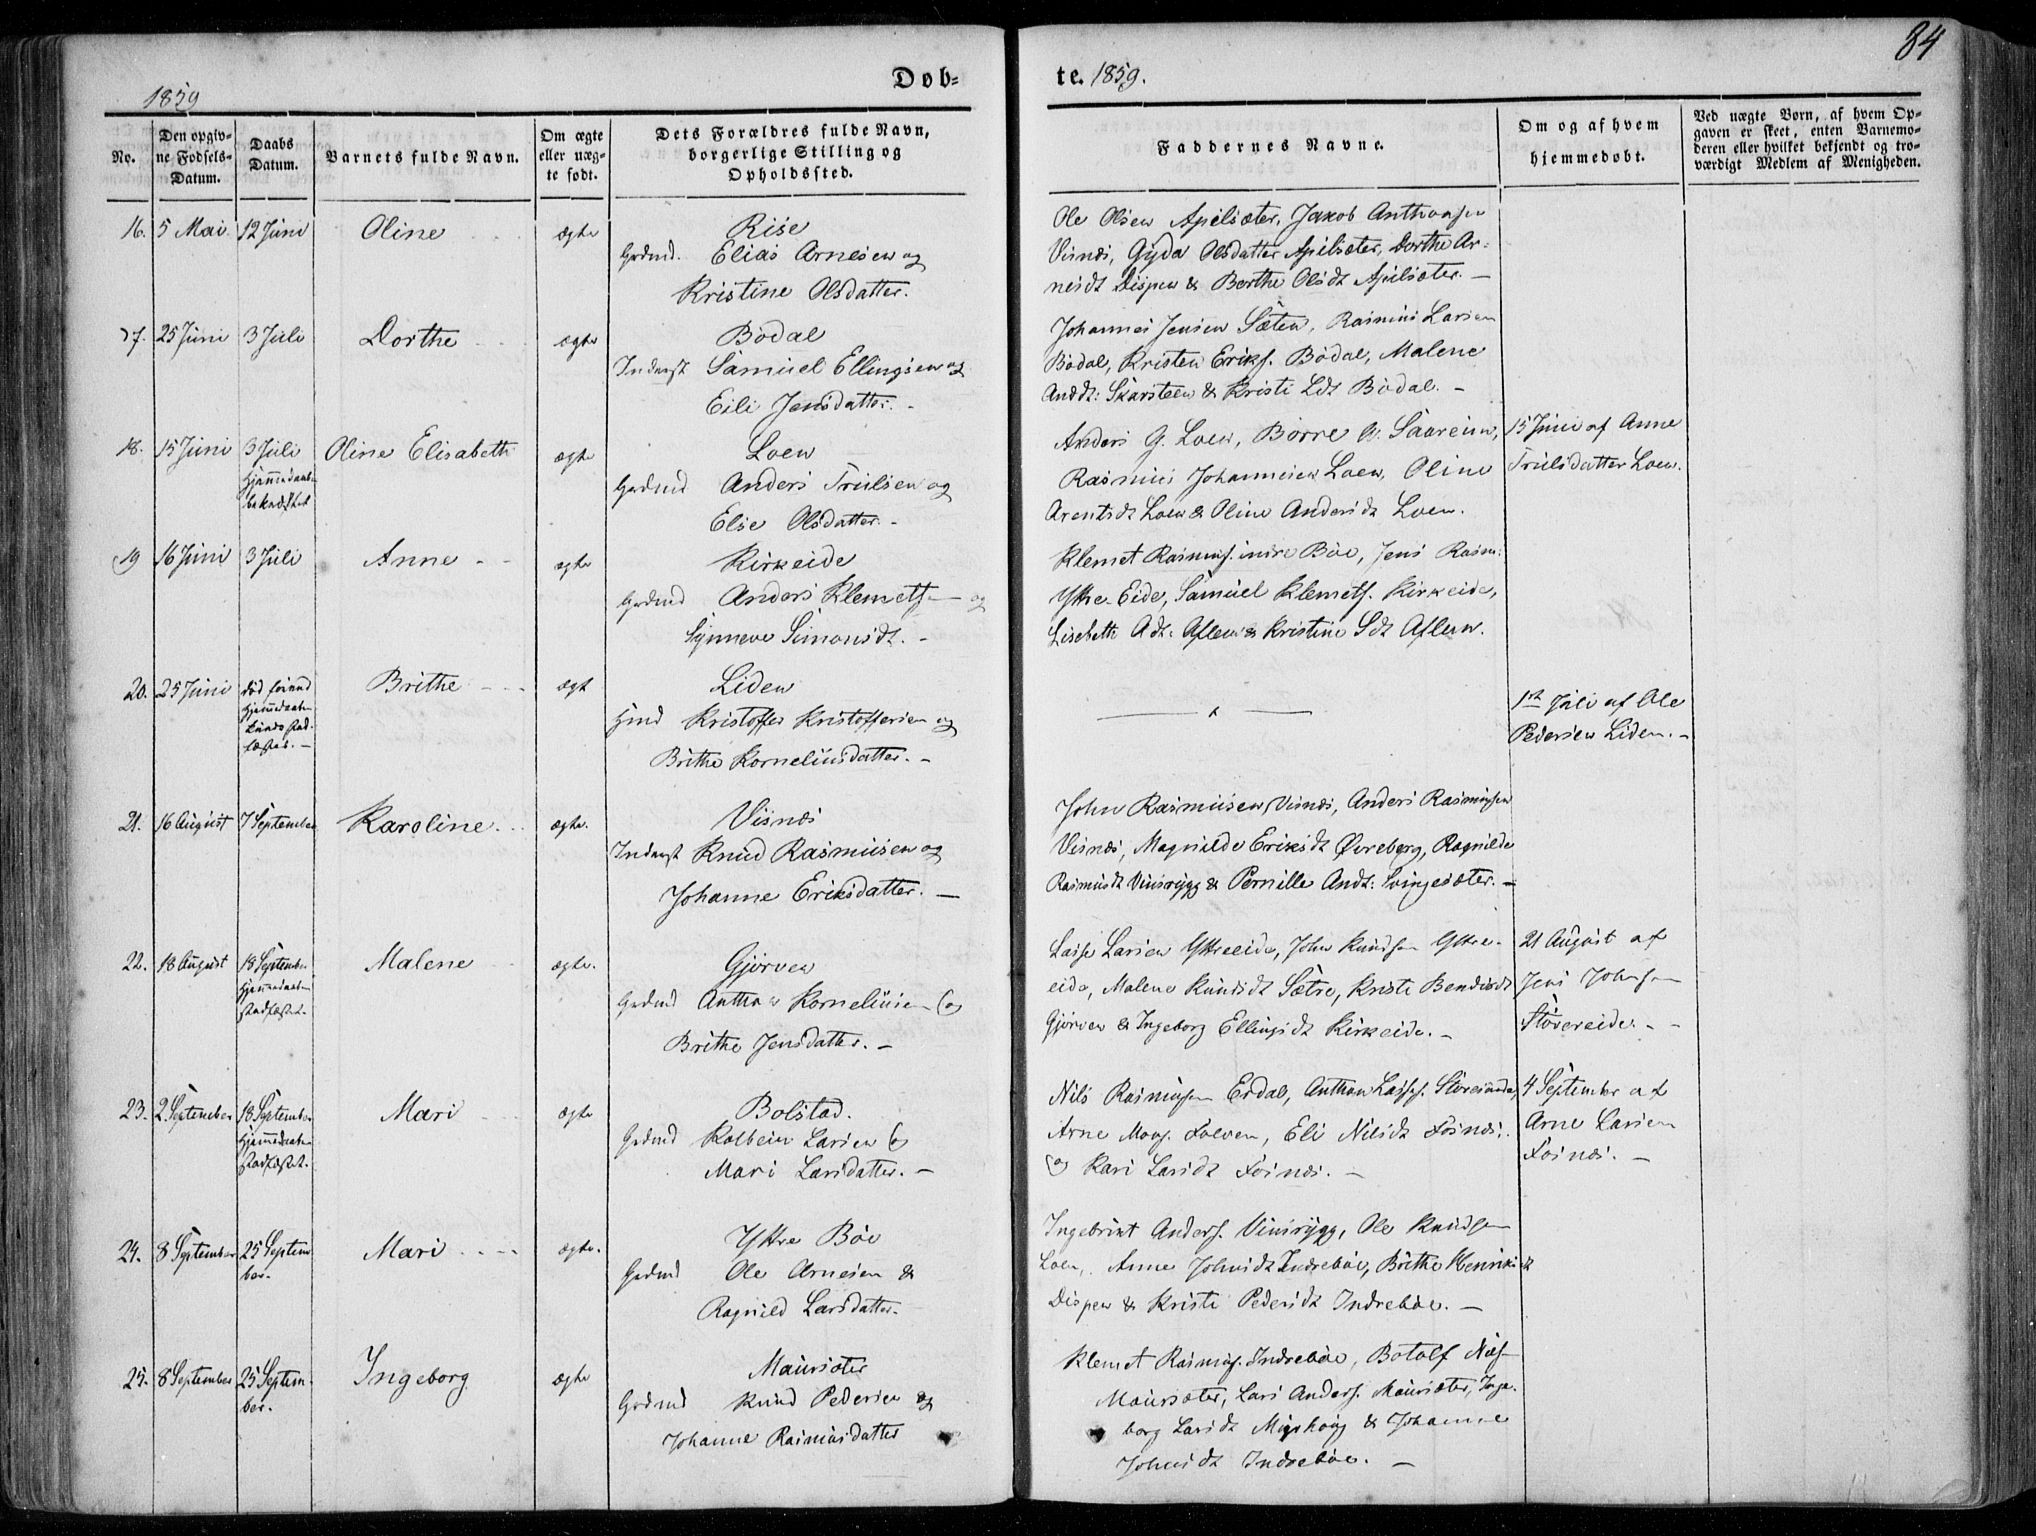 84
1859
Døb-
te. 1859.
No.
Den opgiv-
ne Fødsels-
Datum.
Daabs
Datum.
Barnets fulde Navn.
Om ægte
eller uæg-
te født.
Dets Forældres fulde Navn,
borgerlige Stilling og
Opholdssted.
Faddernes Navne.
Om og af hvem
hjemmedøbt.
Ved uægte Børn, af hvem Op-
gaven er skeet, enten Barnemo-
deren eller hvilket bekjendt og tro-
værdigt Medlem af Menigheden.
16. 5 Mai 12 Juni Oline ægte
Rise
Grdmd. Elias Arnesen og
Kristine Olsdatter.
Ole Olsen Apelsæter, Jakob Anthonsen
Visnæs, Gyda Olsdatter Apelsæter, Dorthe Ar-
nesdt Dispen & Berthe Olsdt Apelsæter. –
17. 25 Juni 3 Juli Dorthe ægte
Bødal
Inderst Samuel Ellingsen og
Eili Jensdatter. –
Johannes Jensen Sæten, Rasmus Larsen
Bødal, Kristen Eriks. Bødal, Malene
Anddt: Skarsteen & Kristi Ldt Bødal. –
18. 15 Juni 3 Juli Oline Elisabeth ægte
Hjemmedaaben
bekræftet
Loen
Grdmd Anders Trulsen og
Elise Olsdatter. –
Anders G. Loen, Børre Saareim,
Rasmus Johannesen Loen, Oline
Arentsdt Loen & Oline Andersdt Loen.
15 Juni af Anne
Trulsdatter Loen.
19 16 Juni 3 Juli Anne ægte
Kirkeide
Grdmd Anders Klemets. og
Synneve Simonsdt. –
Klemet Rasmus. indre Bøe, Jens Rasm:
Yttre-Eide, Samuel Klemets. Kirkeide,
Lisebeth Adt: Afleen & Kristine Sdt Afleen.
20. 25 Juni død forind Brithe ægt
Hjemmedaaben
kunde stad-
fæstes. –
Liden
Hmd Kristoffer Kristoffersen og
Brithe Korneliusdatter. –
1st Juli af Ole
Pedersen Liden. –
21. 16 August 7 September Karoline. ægte.
Visnæs
Inderst Knud Rasmusen og
Johanne Eriksdatter. –
John Rasmusen Visnæs, Anders Rasmusen
Visnæs, Magnilde Eriksdt Øvreberg, Ragnilde
Rasmusdt Vinsrygg & Pernille Andt: Svingesæter. –
22. 18 August 18 September Malene ægte.
Hjemmedaaben
stadfæstet.
Gjørven
Grdmd Anthon Korneliusen og
Brithe Jensdatter. –
Lasse Larsen Yttreeide, John Knudsen Yttre-
eide, Malene Knudsdt Sætre, Kristi Bendixdt
Gjørven & Ingeborg Ellingsdt Kirkeide. –
21 August af
Jens Johnsen
Støvereide. –
23. 2 September 18 September Mari ægte
Hjemmedaaben
stadfæstet.
Bolstad.
Grdmd Kolbein Larsen &
Mari Larsdatter. –
Nils Rasmusen Erdal, Anthon Lasses. Storesunde,
Arne Mons. Folven, Eli Nilsdt Fosnæs,
og Kari Larsdt Fosnæs. –
4 September af
Arne Larsen
Fosnæs. –
24. 8 September 25 Septem- Mari ægte.
ber.
Yttre Bøe
Grdmd Ole Arnesen &
Ragnild Larsdatter.
Ingebrigt Anders. Vinsrygg, Ole Knudsen
Loen, Anne Johnsdt Indrebøe, Brithe Henriksdt
Dispen & Kristi Pedersdt Indrebøe. –
25. 8 September 25 Septem- Ingeborg ægte
ber.
Maursæter
Grdmd Knud Pedersen og
Johanne Rasmusdatter
Klemet Rasmus. Indrebøe, Botolf
Maursæter, Lars Anders. Maursæter, Inge-
borg Larsdt & Johanne
Johnsdt Indrebøe. –